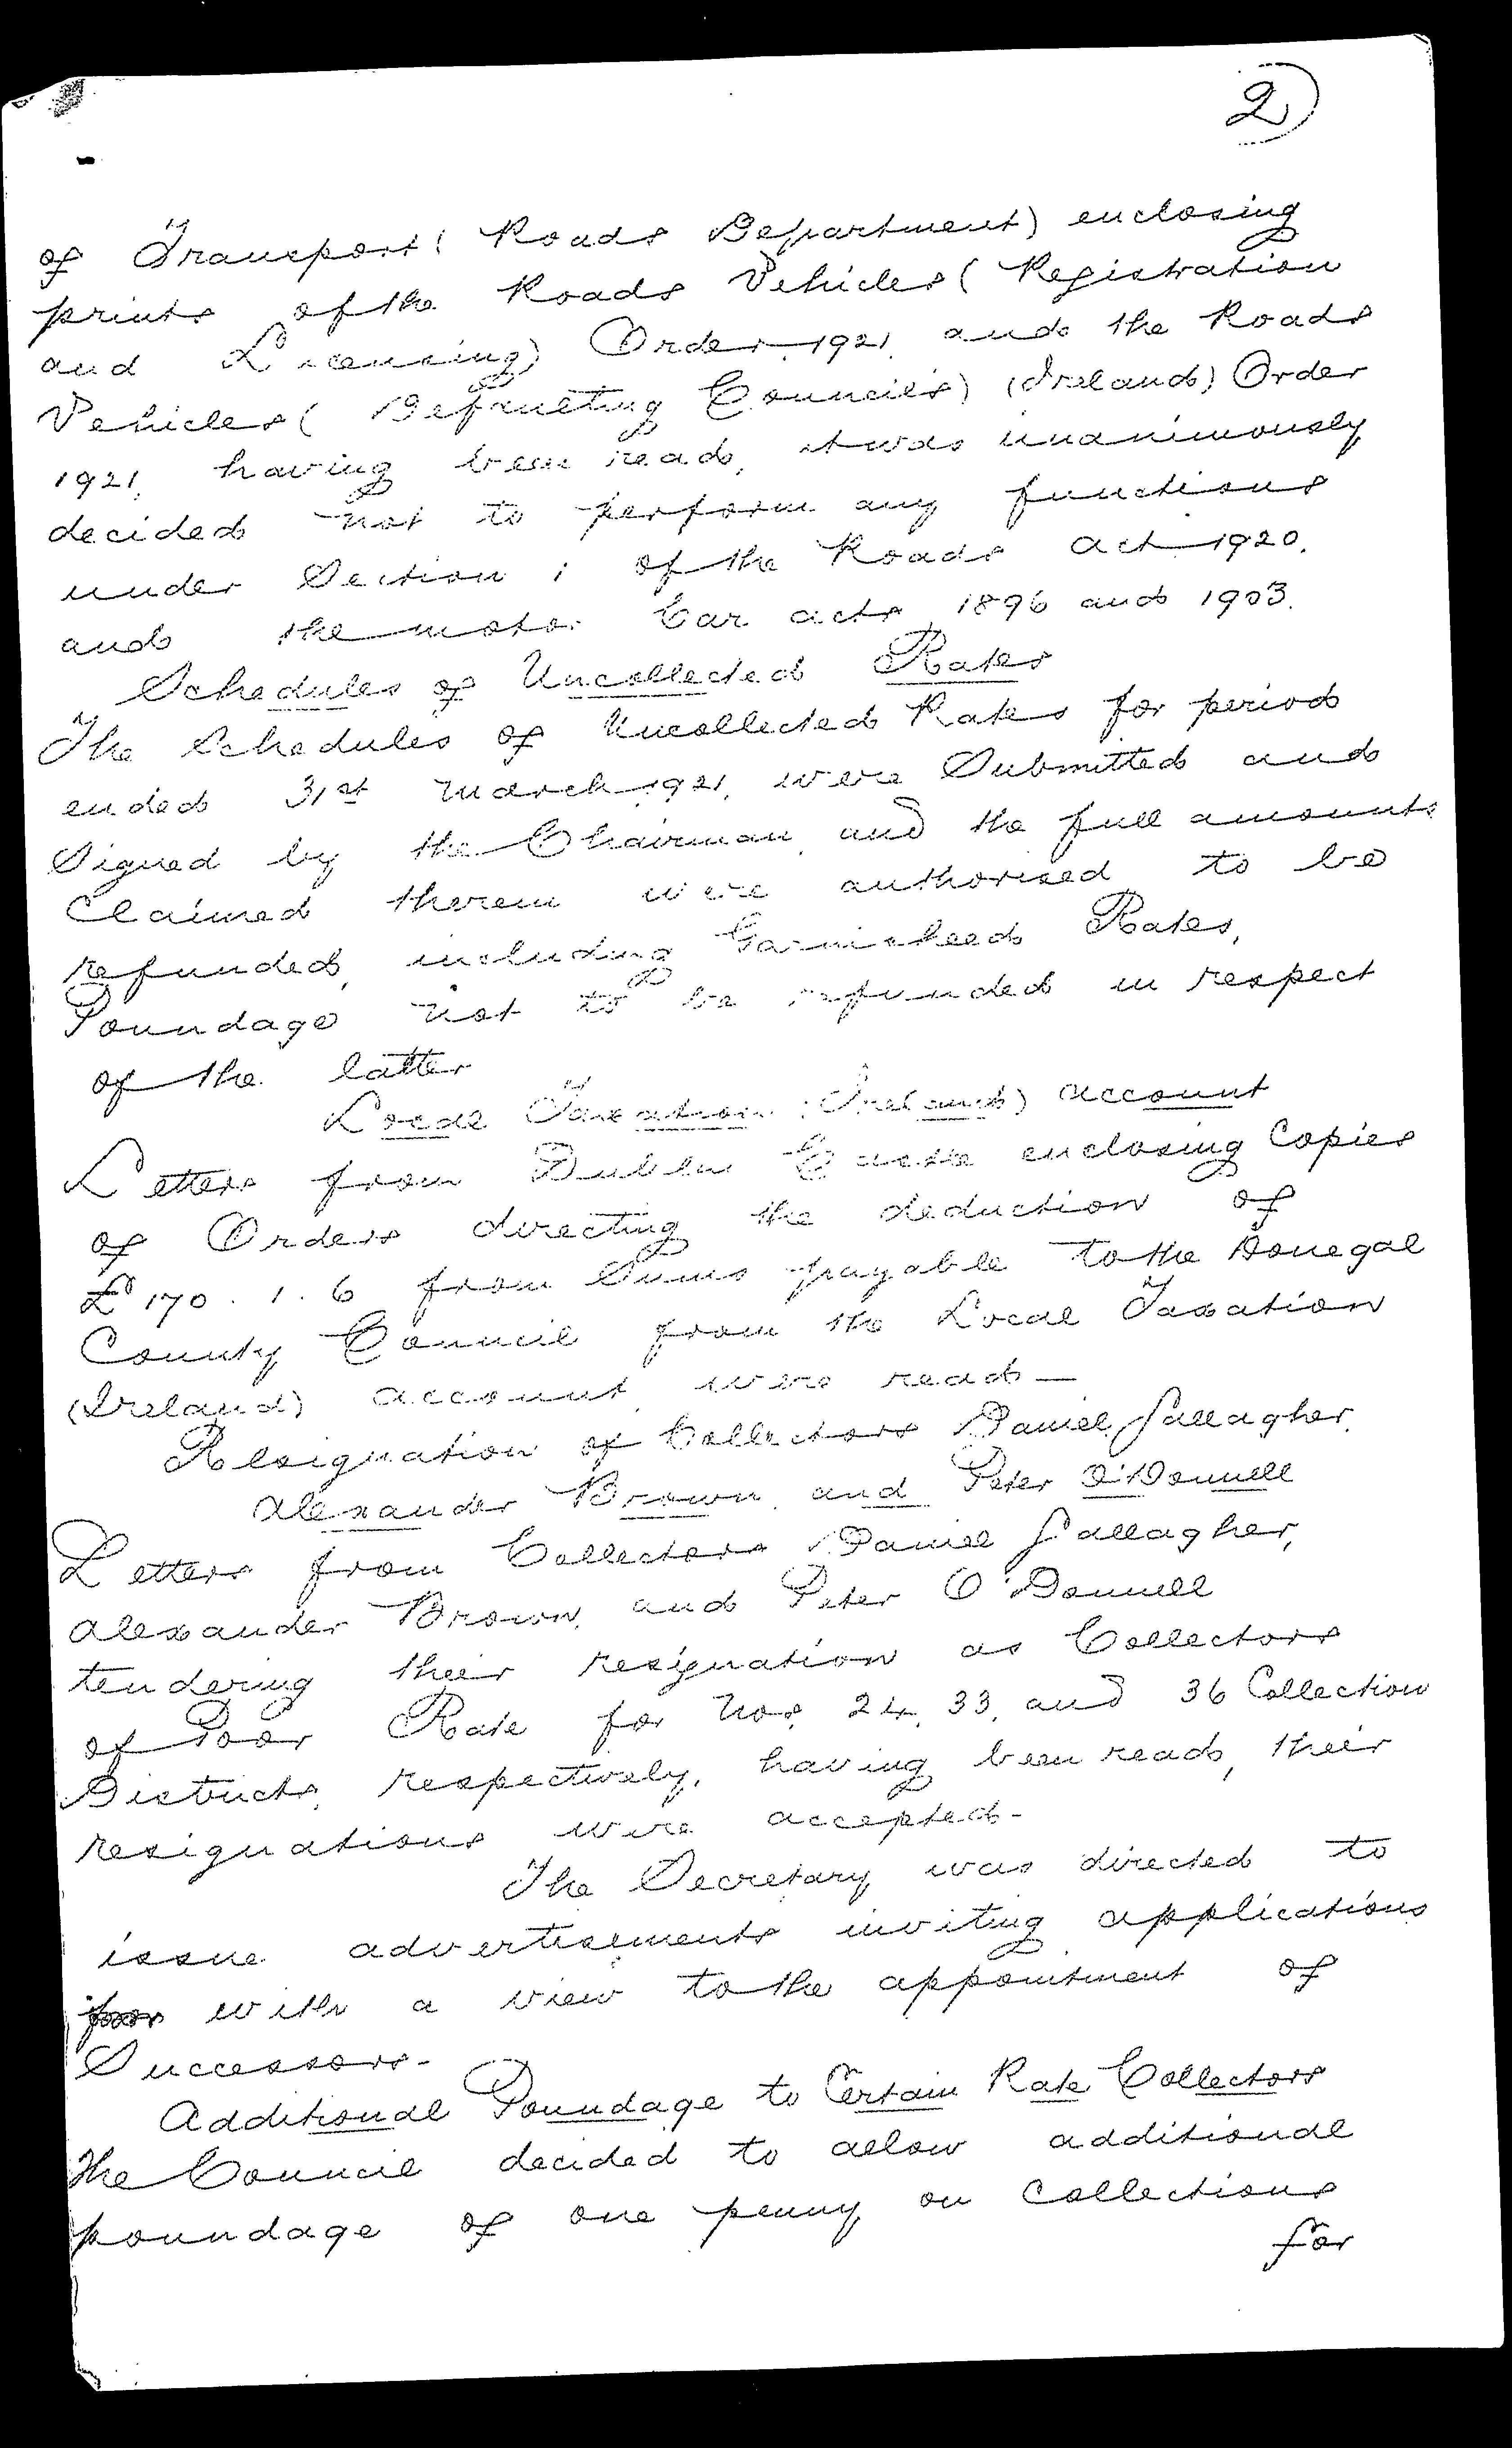 2)
of Transport (Roads Department) enclosing
prints of the Roads Vehicles (Registration
and Licensing) Order, 1921, and the Roads
Vehicles (Defaulting Councils) (Ireland) Order
1921, having been read, it was unanimously
decided not to perform any functions
under Section 1 of the Roads Act 1920,
and the motor Car acts, 1896 and 1903.
Schedules of Uncollected Rates
The Schedules of Uncollected Rates for period
ended 31st March 1921, were Submitted and
Signed by the Chairman, and the full amounts
Claimed therein were authorised to be
refunded, including Garnisheed Rates,
Poundage not to be refunded in respect
of the latter
Local Taxation (Ireland) account
Letters from Dublin Castle enclosing Copies
of Orders directing the deduction of
£170.1.6 from Sums payable to the Donegal
County Council from the Local Taxation
(Ireland) account, were read—
Resignation of Collectors Daniel Gallagher,
Alexander Brown, and Peter O'Donnell
Letters from Collectors Daniel Gallagher,
Alexander Brown, and Peter O'Donnell
tendering their resignation as Collectors
of Poor Rate for Nos. 24, 33, and 36 Collection
Districts, respectively, having been read, their
resignations were accepted-
The Secretary was directed to
issue advertisements inviting applications
with a view to the appointment of
Successors-
Additional Poundage to Certain Rate Collectors
The Council decided to allow additional
poundage of one penny on Collections
for